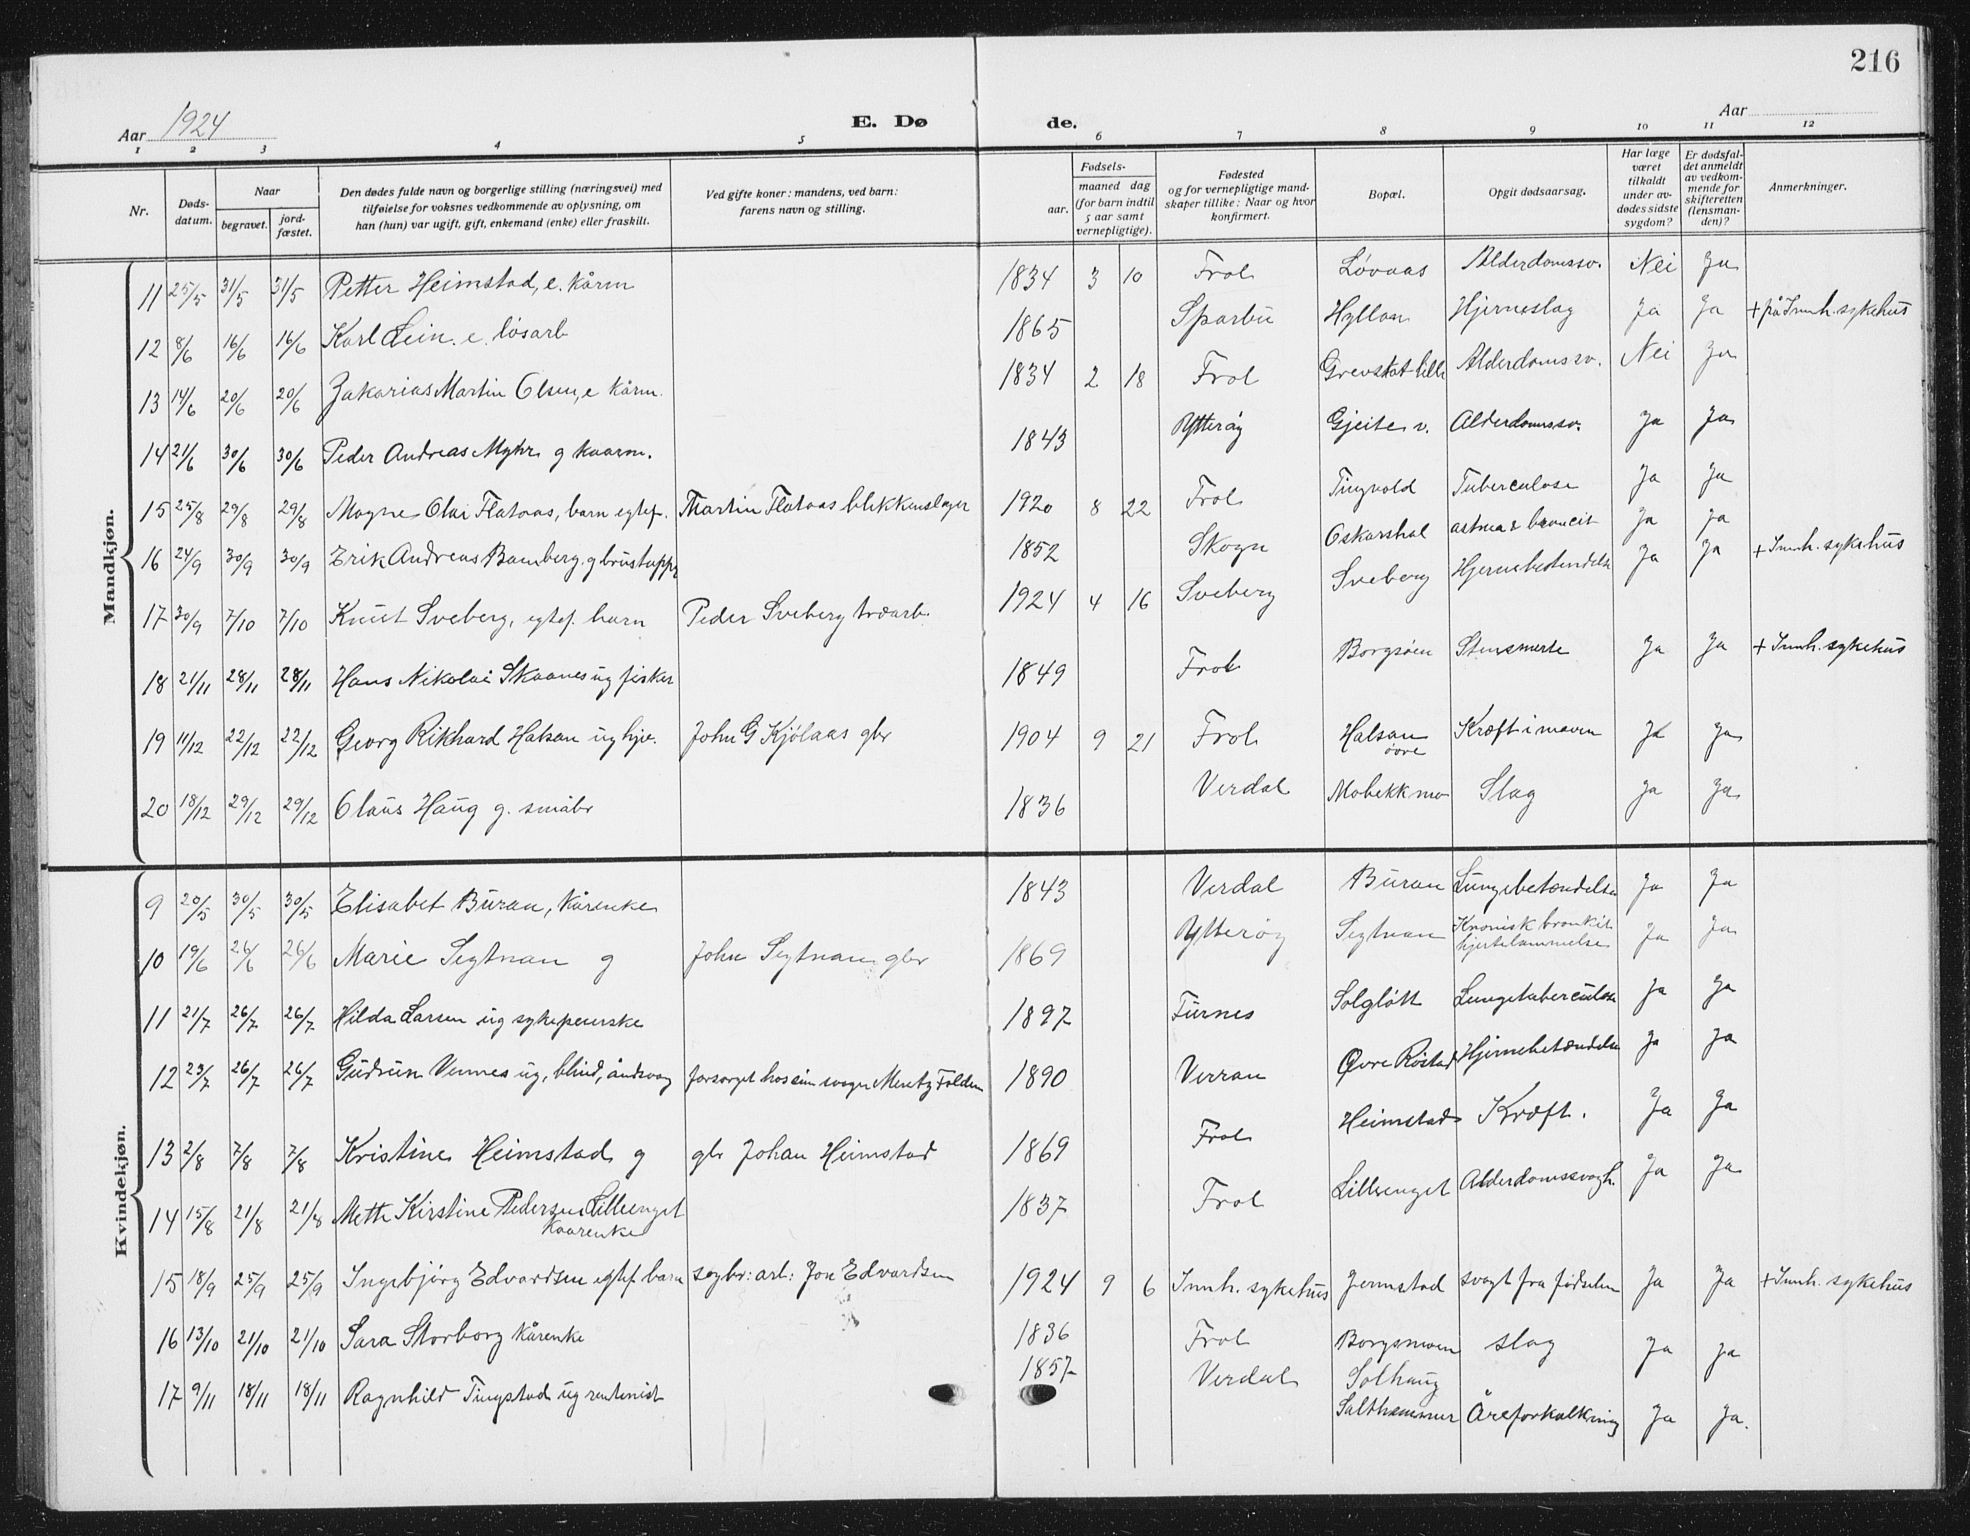 216
Aar 1924
E. Dø
de.
Aar
1 2 3 4 5 6 7 8 9 10 11 12
Nr.
Døds-
datum.
Naar
begravet.
jord-
fæstet.
Den dødes fulde navn og borgerlige stilling (næringsvei) med
tilføielse for voksnes vedkommende av oplysning, om
han (hun) var ugift, gift, enkemand (enke) eller fraskilt.
Ved gifte koner: mandens, ved barn:
farens navn og stilling.
Fødsels-
aar.
maaned dag
(for barn indtil
5 aar samt
vernepligtige).
Fødested
og for vernepligtige mand-
skaper tillike: Naar og hvor
konfirmert.
Bopæl.
Opgit dødsaarsag.
Har læge
været
tilkaldt
under av-
dødes sidste
sygdom?
Er dødsfal-
det anmeldt
av vedkom-
mende for
skifteretten
(lensman-
den)?
Anmerkninger.
Mandkjøn.
11 25/5 31/5 31/5 Petter Heimstad, e. kårm 1834 3 10 Frol Løvaas Alderdomssv. Nei Ja
12 8/6 16/6 16/6 Karl Lein. e. løsarb 1865 Sparbu Hyllan Hjerneslag Ja Ja + på Innh. sykehus
13 14/6 20/6 20/6 Zakarias Martin Olsen, e kårm. 1834 2 18 Frol Grevskot lille Alderdomssv. Nei Ja
14 21/6 30/6 30/6 Peder Andreas Myhr g kaarm. 1843 Ytterøy Gjeite v. Alderdomssv. Ja Ja
15 25/8 29/8 29/8 Magne Olai Flataas, barn egtef. Martin Flataas blikkenslager 1920 8 22 Frol Tingvold Tuberculose Ja Ja
16 24/9 30/9 30/9 Erik Andreas Bamberg. g brustappr 1852 Skogn Oskarshal astma & broncit Ja Ja + Innh. sykehus
17 30/9 7/10 7/10 Knut Sveberg, egtef. barn Peder Sveberg træarb. 1924 4 16 Sveberg Sveberg Hjernebetendelse Ja Ja
18 21/11 28/11 28/11 Hans Nikolai Skaanes ug fisker 1849 Frol Borgsøen Stensmerte Ja Ja + Innh. sykehus
19 11/12 22/12 22/12 Georg Rikhard Halsan ug hjv. John G Kjølaas gbr 1904 9 21 Frol Halsan øvre Kræft i maven Ja Ja
20 18/12 29/12 29/12 Olaus Haug g. småbr 1836 Verdal Mobekkmo Slag Ja Ja
Kvindekjøn.
9 20/5 30/5 30/5 Elisabet Buran, kårenke 1843 Verdal Buran Lungebetændelse Ja Ja
10 19/6 26/6 26/6 Marie Segtnan g John Segtnan gbr 1869 Ytterøy Segtnan Kronisk bronkit hjertelammelse Ja Ja
11 21/7 26/7 26/7 Hilda Larsen ug sykepleierske 1897 Furnes Solgløtt Lungetuberculose Ja Ja
12 23/7 26/7 26/7 Gudrun Vennes ug, blind, åndsvag forsørget hos sin svoger Mentz Folden 1890 Verran Øvre Røstad Hjernebetændelse Ja Ja
13 2/8 7/8 7/8 Kristine Heimstad g gbr Johan Heimstad 1869 Frol Heimstad Kræft. Ja Ja
14 15/8 21/8 21/8 Mette Kirstine Pedersen Lillevenget kaarenke 1837 Frol Lillevenget Alderdomssvagh. Ja Ja
15 18/9 25/9 25/9 Ingebjørg Edvardsen egtef. barn sagbr: arb: Jon Edvardsen 1924 9 6 Innh. sykehus Jermstad svagt fra fødselen Ja Ja + Innh. sykehus
16 13/10 21/10 21/10 Sara Storborg kårenke 1836 Frol Borgsmoen slag Ja Ja
17 9/11 18/11 18/11 Ragnhild Tingstad ug rentenist 1857 Verdal Solhaug Salthammer Åreforkalkning Ja Ja.